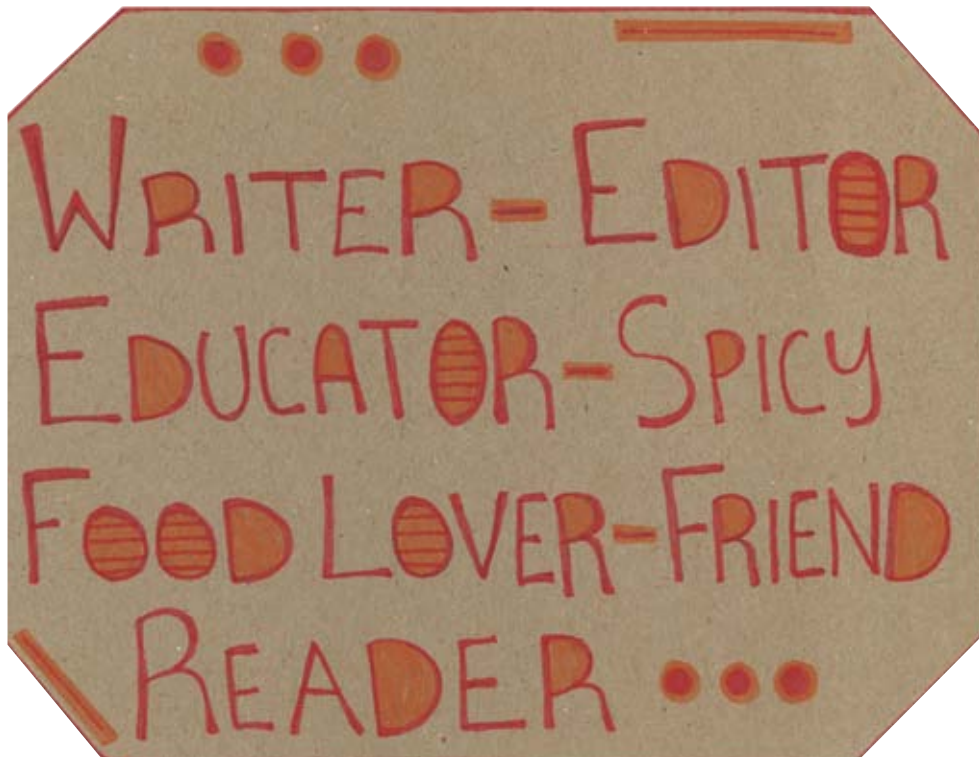 WRITER-EDITOR
EDUCATOR-SPICY
FOOD LOVER-FRIEND
READER ...